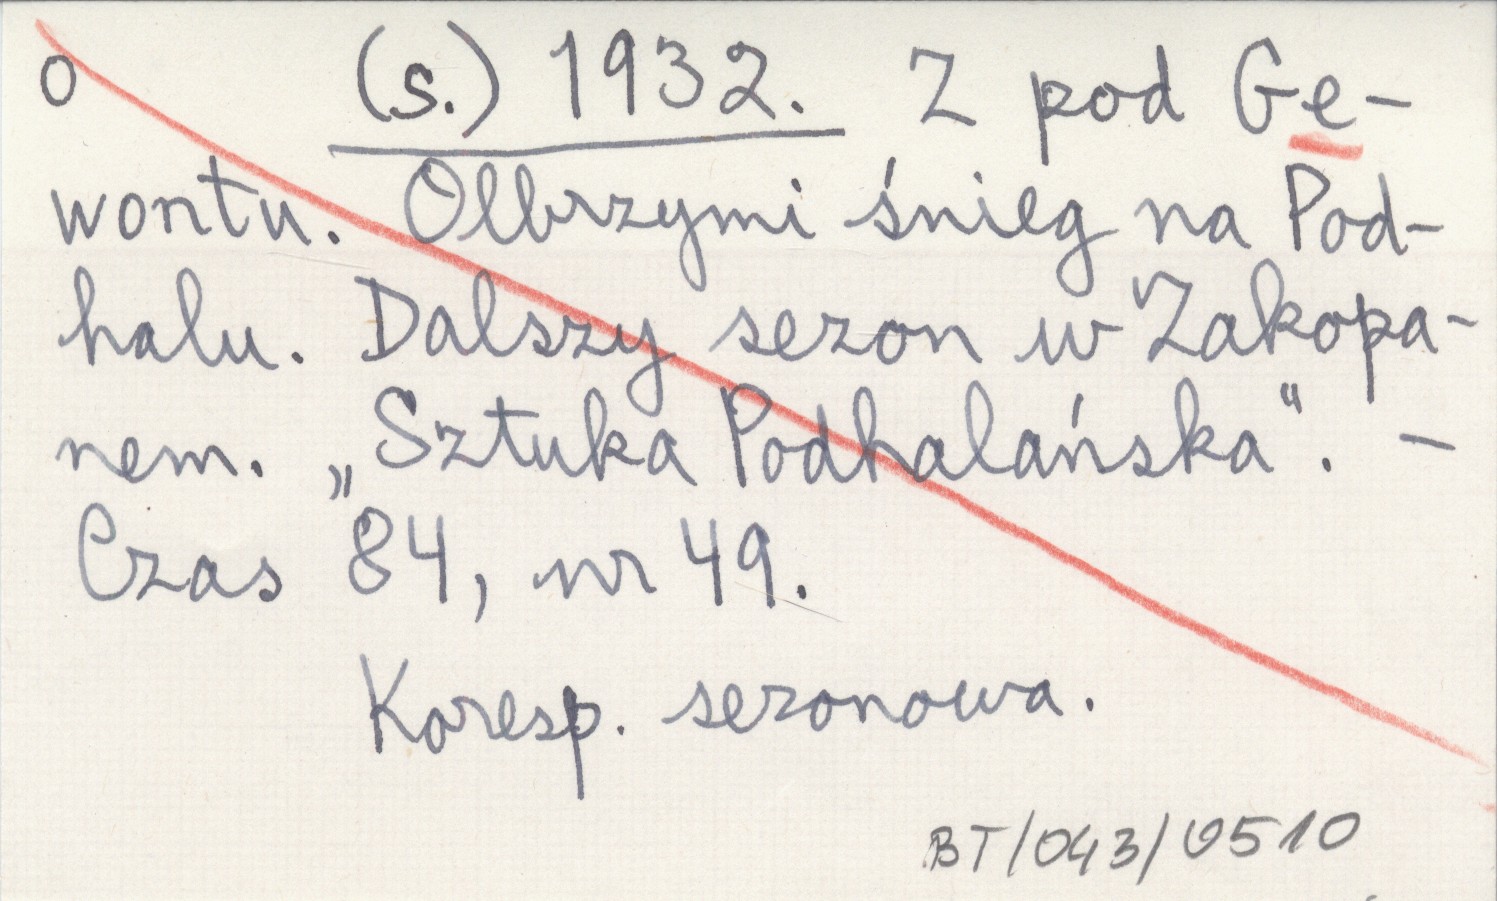 o (s.) 1932. Z pod Ge-
wontu. Olbrzymi śnieg na Pod-
halu. Dalszy sezon w Zakopa-
nem. „Sztuka Podhalańska". -
Czas 84, nr 49.
Koresp. sezonowa.
BT/043/0510